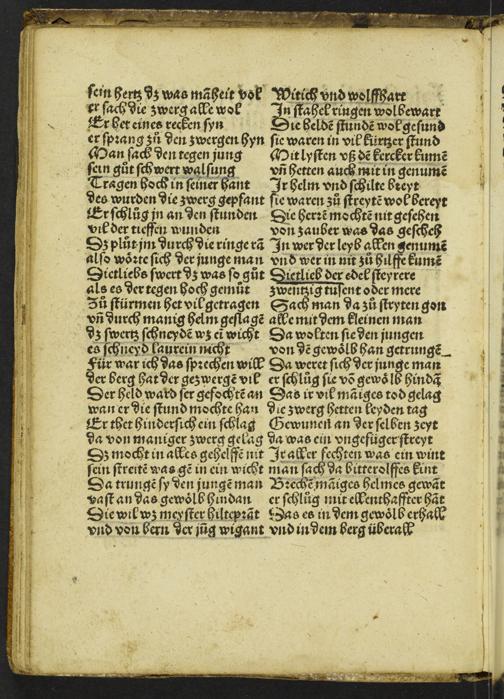 sein hertz dz was mãheit vol
er sach die zwerg alle wol
Er het eines recken syn
er sprang zů den zwergen hyn
Man sach den tegen jung
sein gůt schwert walsung
Tragen hoch in seiner hant
des wurden die zwerg gepfant
Er schlůg jn an den stunden
vil der tieffen wunden
Dz plůt jm durch die ringe rã
also wörte sich der junge man
Dietliebs swert dz was so gůt
als es der tegen hoch gemůt
Zů stürmen het vil getragen
vñ durch manig helm geslagẽ
dz swertz schneydẽ wz ei wicht
es schneyd laurein nicht
Für war ich das sprechen will
der berg hat der gezwergẽ vil
Der held ward ser gefochtẽ an
wan er die stund mochte han
Er thet hindersich ein schlag
da von maniger zwerg gelag
Dz mocht in alles gehelffẽ nit
sein streitẽ was gẽ in ein wicht
Da trungẽ sy den jungẽ man
vast an das gewölb hindan
Die wil wz meyster hilteprãt
vnd von bern der jũg wigant
Witich vnd wolffhart
In stahel ringen wolbewart
Die heldẽ stundẽ wol gesund
sie waren in vil kürtzer stund
Mit lysten vß dẽ kercker kumẽ
vñ hetten auch mit in genumẽ
Ir helm vnd schilte breyt
sie waren zů streytẽ wol bereyt
Die herrẽ mochtẽ nit gesehen
von zauber was das gescheh
In wer der leyb allen genumẽ
vnd wer in nit zů hilffe kumẽ
Dietlieb der edel steyrere
zwentzig tusent oder mere
Sach man da zů stryten gon
alle mit dem kleinen man
Da wolten sie den jungen
von dẽ gewölb han getrungẽ
Da weret sich der junge man
er schlůg sie võ gewölb hindã
Das ir vil mãiges tod gelag
die zwerg hetten leyden tag
Gewunen an der selben zeyt
da was ein vngefüger streyt
Ir aller fechten was ein wint
man sach da bitterolffes kint
Brechẽ mãiges helmes gewãt
er schlůg mit ellenthaffter hãt
Das es in dem gewölb erhall
vnd in dem berg überall